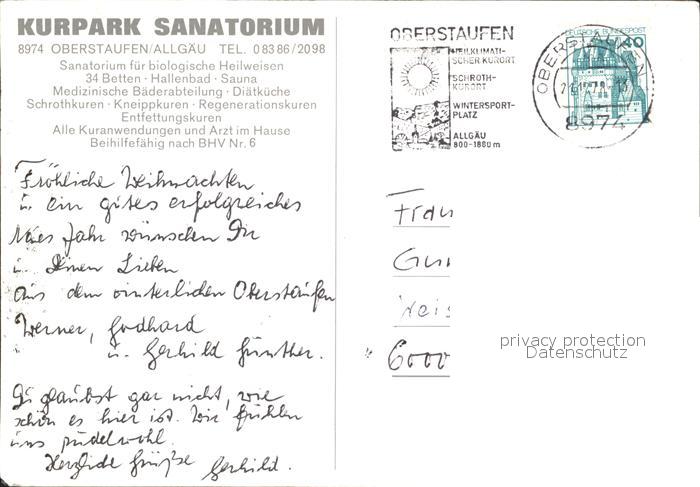 KURPARK SANATORIUM
8974 OBERSTAUFEN/ALLGÄU TEL. 08386/2098
Sanatorium für biologische Heilweisen
34 Betten · Hallenbad · Sauna
Medizinische Bäderabteilung · Diätküche
Schrothkuren · Kneippkuren · Regenerationskuren
Entfettungskuren
Alle Kuranwendungen und Arzt im Hause
Beihilfefähig nach BHV Nr. 6
Fröhliche Weihnachten
u. ein gutes erfolgreiches
Neues Jahr wünschen Dir
u. Deinen Lieben
aus dem winterlichen Oberstaufen
Werner, Godhard
u. Gerhild Günther.
Du glaubst gar nicht, wie
schön es hier ist. Wir fühlen
uns pudelwohl.
Herzliche Grüße Gerhild.
OBERSTAUFEN
HEILKLIMATI-
SCHER KURORT
SCHROTH-
KURORT
WINTERSPORT-
PLATZ
ALLGÄU
800-1880 m
OBERSTAUFEN
8974
DEUTSCHE BUNDESPOST
40
Frau
6000
privacy protection
Datenschutz